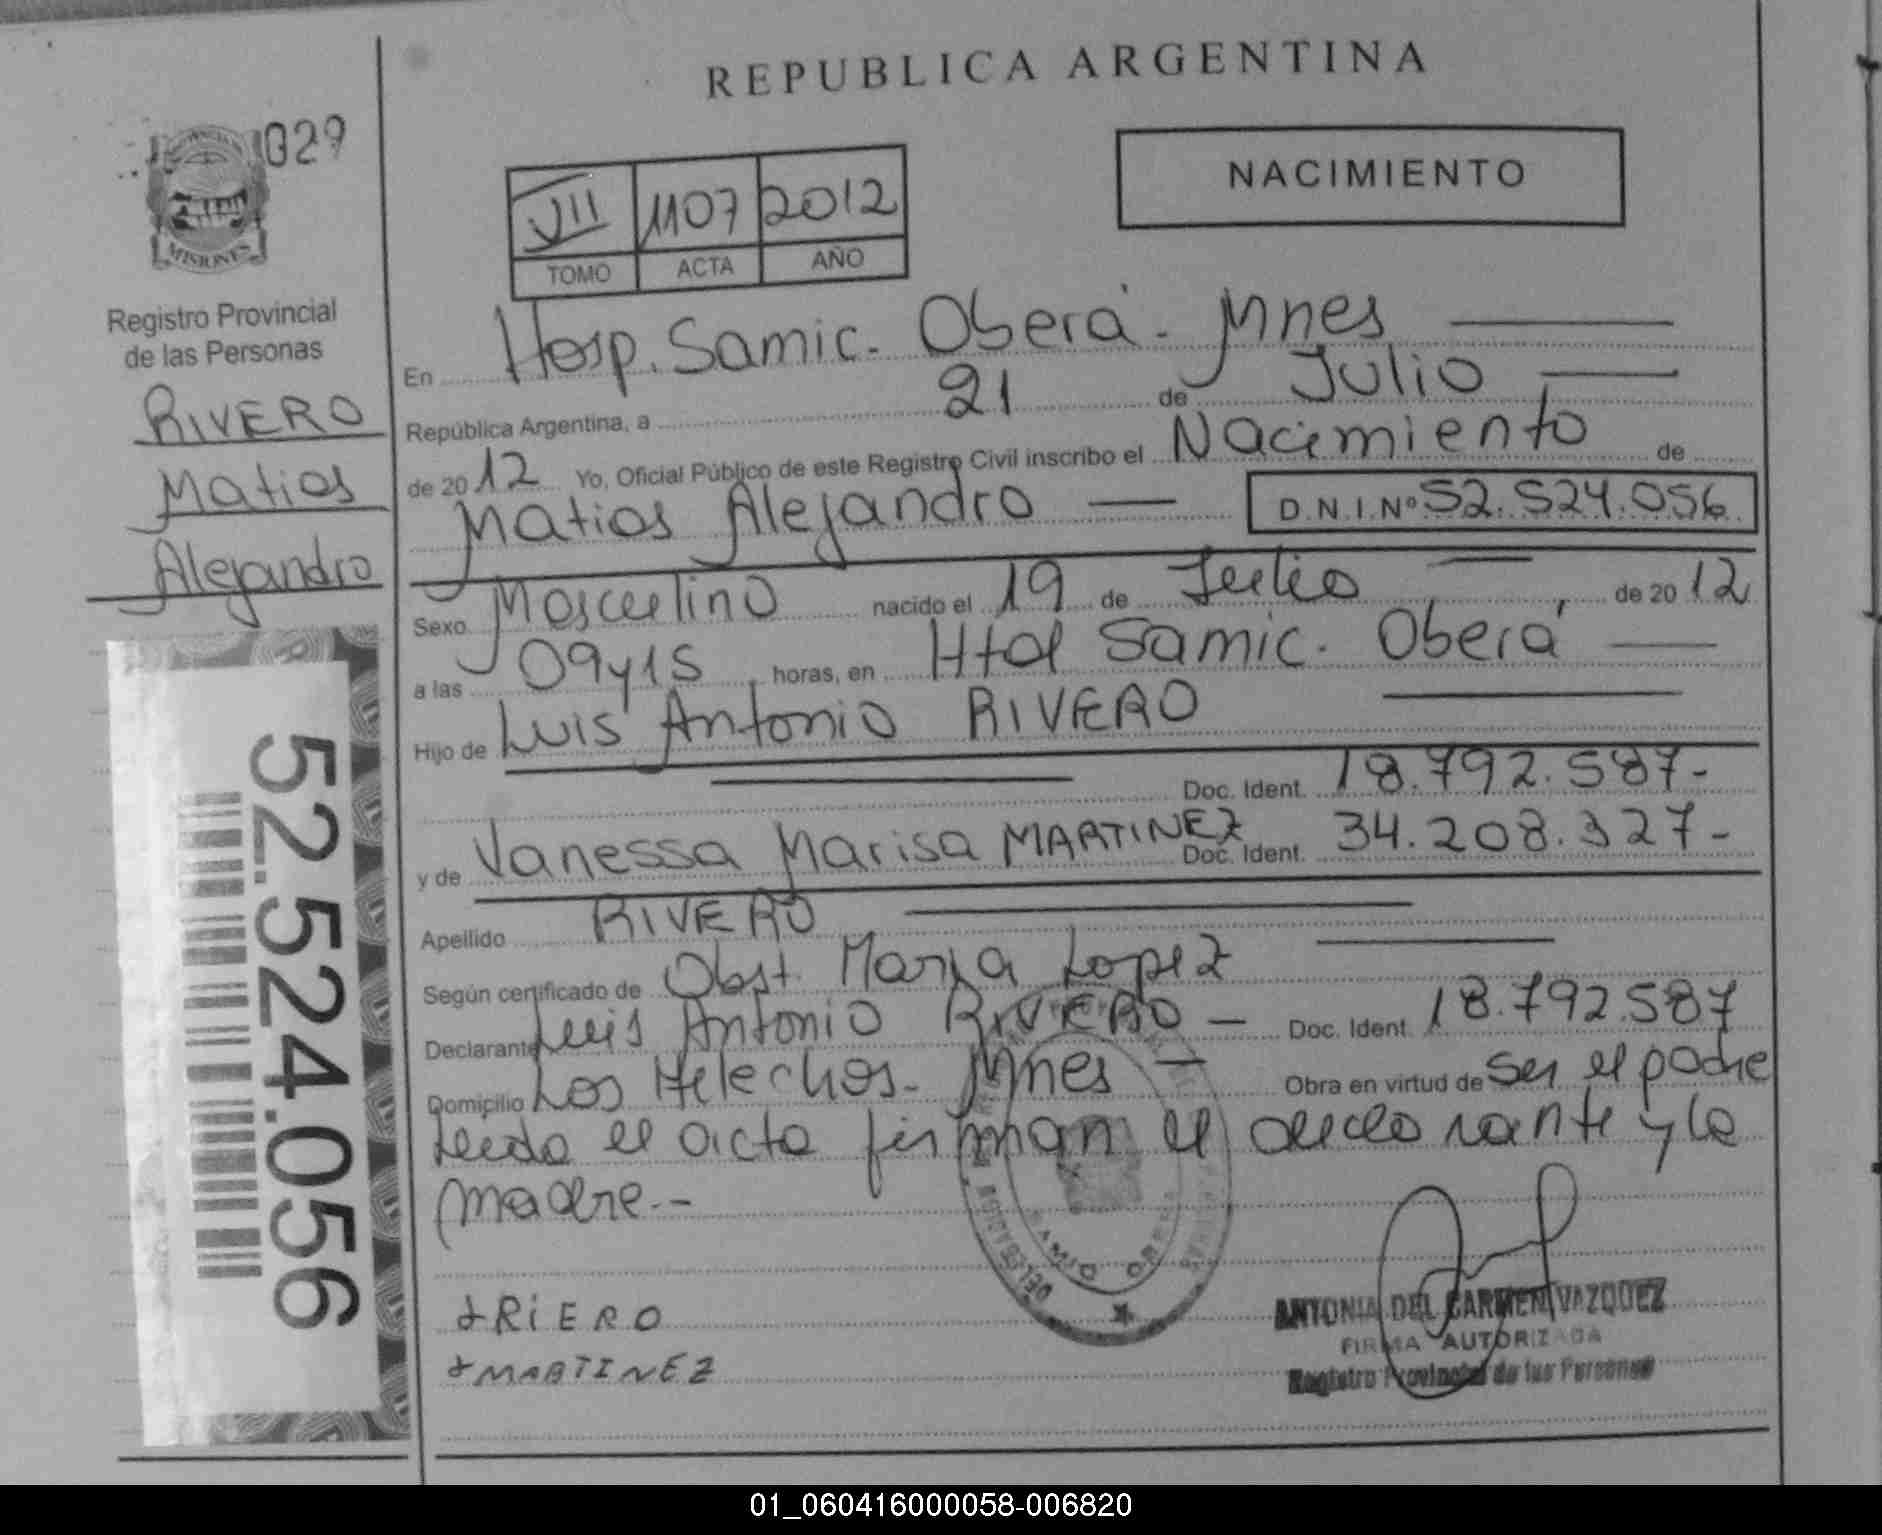 REPUBLICA ARGENTINA
029
MISIONES
Registro Provincial
de las Personas
RIVERO
Matias
Alejandro
52.524.056
VII 1107 2012
TOMO ACTA AÑO
NACIMIENTO
En Hosp. Samic. Oberá - Mnes
República Argentina, a 21 de Julio
de 2012 Yo, Oficial Público de este Registro Civil inscribo el Nacimiento de
Matias Alejandro D.N.I.Nº 52.524.056
Sexo Masculino nacido el 19 de Julio de 2012
a las 09y15 horas, en Htal Samic. Oberá
Hijo de Luis Antonio RIVERO
Doc. Ident. 18.792.587-
y de Vanessa Marisa MARTINEZ Doc. Ident. 34.208.327-
Apellido RIVERO
Según certificado de Obst. Maria Lopez
Declarante Luis Antonio RIVERO - Doc. Ident. 18.792.587
Domicilio Los Helechos - Mnes - Obra en virtud de Ser el padre
Leida el acta firman el declarante y la
madre.-
DELEGACION
SAMIC OBERA
+RiERO
+MARTINEZ
ANTONIA DEL CARMEN VAZQUEZ
FIRMA AUTORIZADA
Registro Provincial de las Personas
01_060416000058-006820